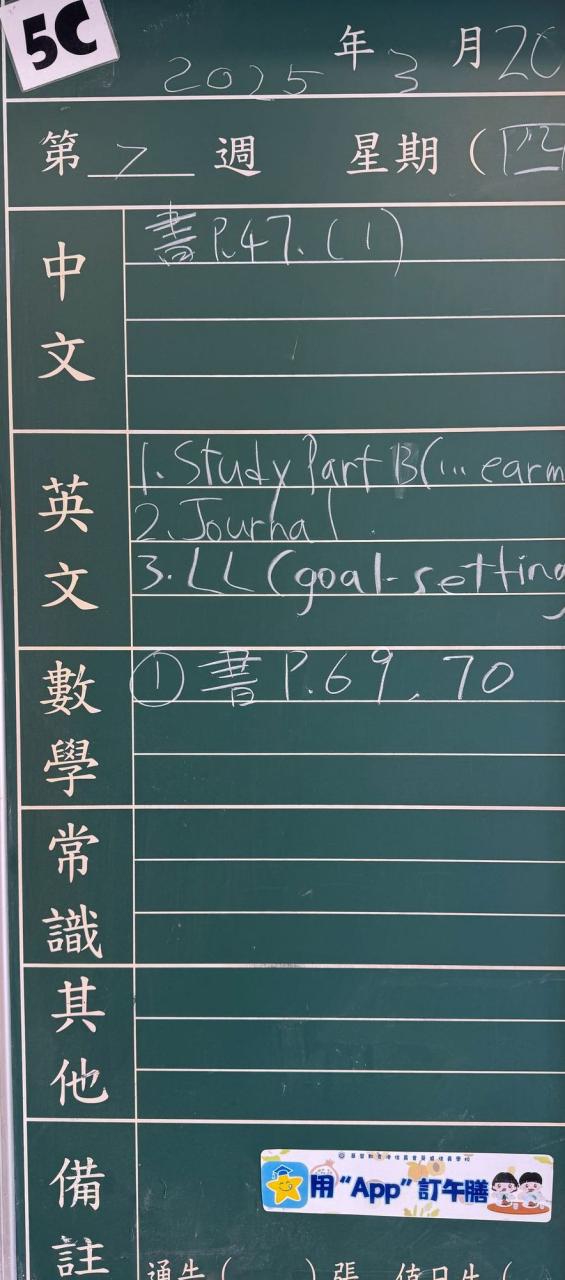 5C
2025 年 3 月 20
第 7 週 星期 (四
中文
書 P.47. (1)
英文
1. Study Part B (... earm
2. Journal.
3. LL (goal-setting
數學
① 書 P.69, 70
常識
其他
備註
用 “App” 訂午膳
通告 ( ) 張 值日生 (